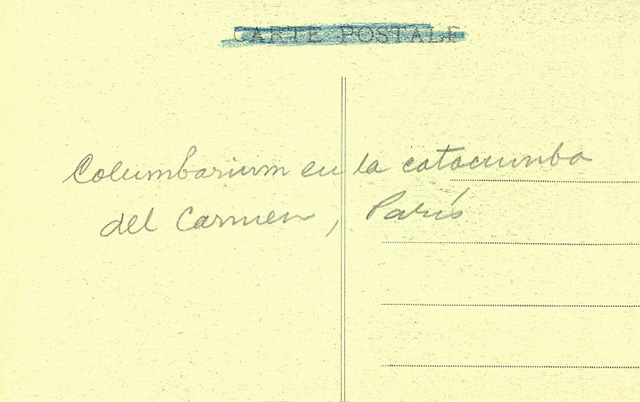 CARTE POSTALE
Columbarium en la catacumba
del Carmen, París